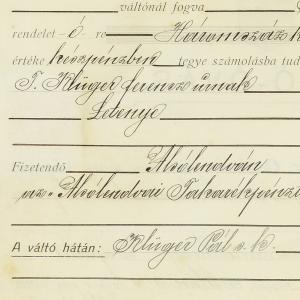 váltónál fogva
rendelet – ó re Háromszáz
értéke készpénzben tegye számolásba tud
T. Klüger Ferencz úrnak
Letenye
Fizetendő Alsólendván
az „Alsólendvai Takarékpénzt
A váltó hátán: Klüger Pál s. k.